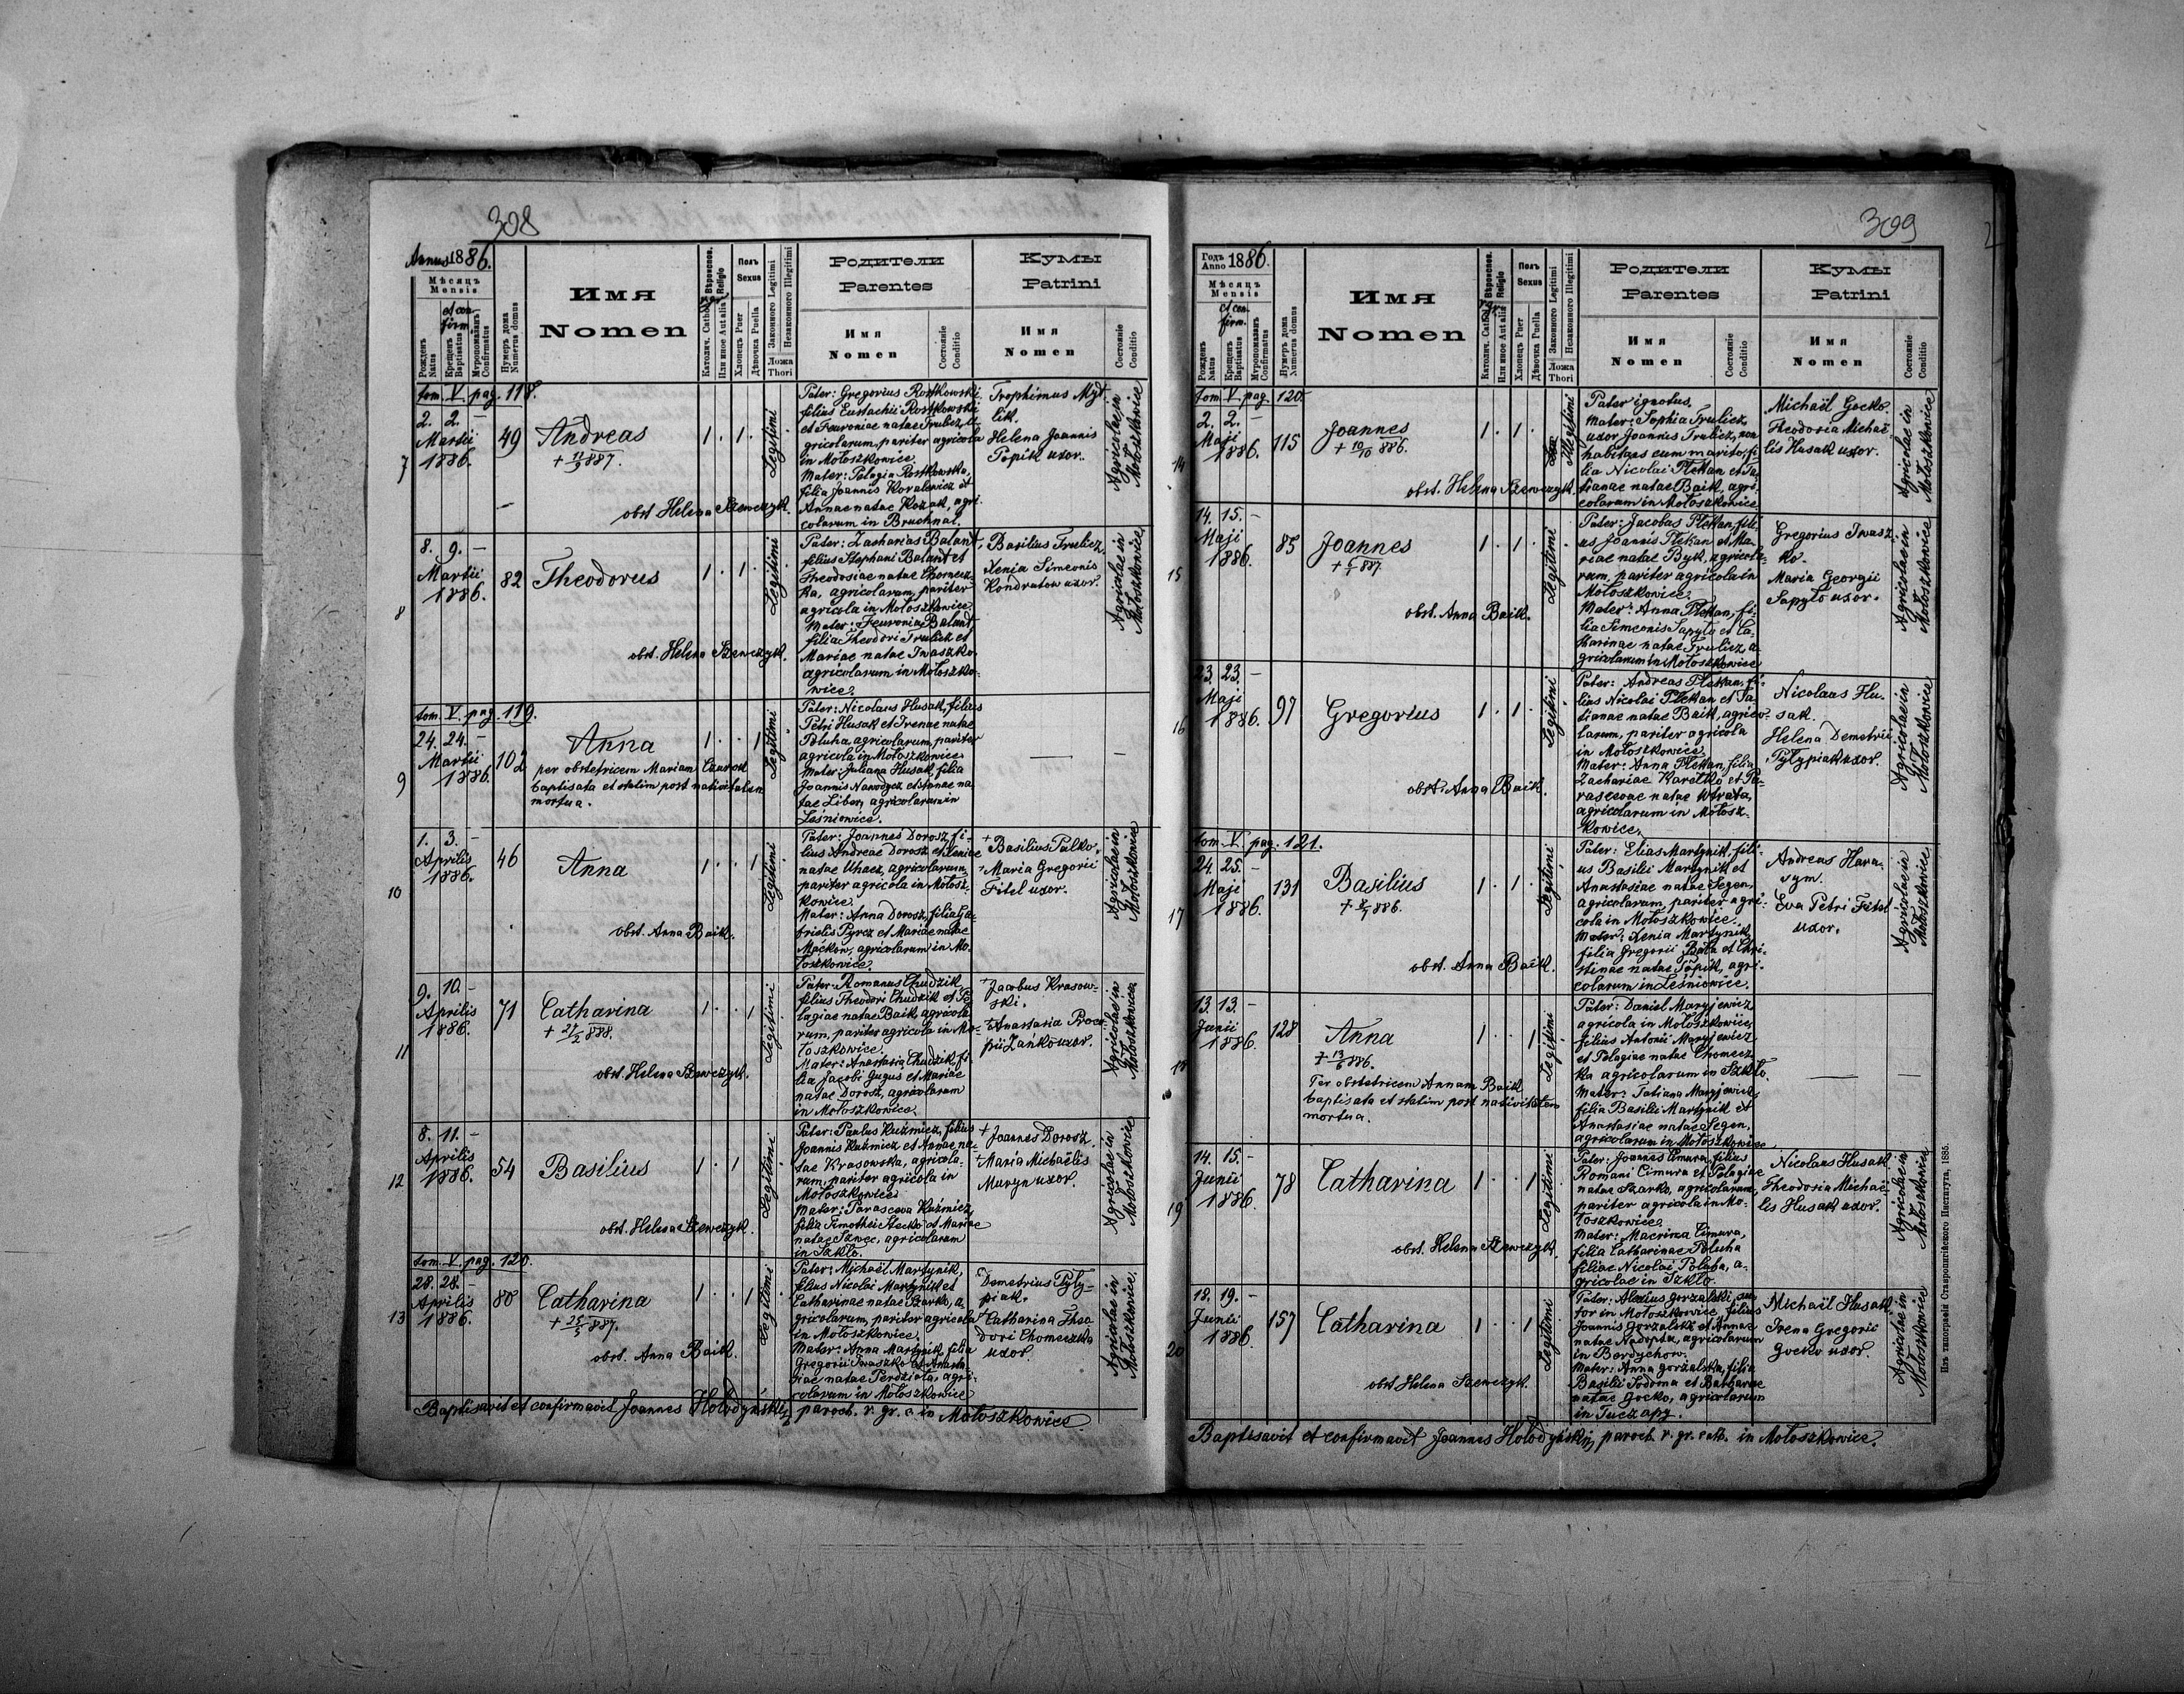 308
Annus 1886.
Мѣсяцъ
Mensis
et con
firm.
Рожденъ
Natus
Крещенъ
Baptisatus
Муропомазанъ
Confirmatus
Нумеръ дома
Numerus domus
Имя
Nomen
Вѣроиспов.
Religio
Католич. Cathol.
Или иное Aut alia
Полъ
Sexus
Хлопецъ Puer
Дѣвочка Puella
Законного Legitimi
Незаконного Illegitimi
Ложа
Thori
Родители
Parentes
Имя
Nomen
Состояніе
Conditio
Кумы
Patrini
Имя
Nomen
Состояніе
Conditio
tom. V. pag. 118.
7
2. 2. -
Martii
1886.
49
Andreas
+ 11/3 887.
obst. Helena Szewczyk.
1 · 1 ·
Legitimi
Pater: Gregorius Rostkowski
filius Eustachii Rostkowski
et Feuroniae natae Trulicz, a-
gricolarum, pariter agricola
in Mołoszkowice.
Mater: Pelagia Rostkowska,
filia Joannis Kovalewicz et
Annae natae Kozak, agri-
colarum in Bruchnal.
Trophimus Myt-
lik.
Helena Joannis
Popik uxor.
Agricolae in
Mołoszkowice
8
8. 9. -
Martii
1886.
82
Theodorus
obst. Helena Szewczyk.
1 · 1 ·
Legitimi
Pater: Zacharias Balant,
filius Stephani Balant et
Theodosiae natae Chomecz-
ka, agricolarum, pariter
agricola in Mołoszkowice.
Mater: Feuronia Balant,
filia Theodori Trulicz et
Mariae natae Iwaszko
agricolarum in Mołoszko-
wice.
Basilius Trulicz
Xenia Simeonis
Kondratow uxor.
Agricolae in
Mołoszkowice
tom. V. pag. 119.
9
24. 24. -
Martii
1886.
102
Anna
per obstetricem Mariam
baptisata et statim post nativitatem
mortua.
1 · · 1
Legitimi
Pater: Nicolaus Husak, filius
Petri Husak et Irenae natae
Poluha, agricolarum, pariter
agricola in Mołoszkowice.
Mater: Juliana Husak, filia
Joannis et Annae na-
tae Liber, agricolarum in
Leśniowice.
—
10
1. 3. -
Aprilis
1886.
46
Anna
obst. Anna Baik.
1 · · 1
Legitimi
Pater: Joannes Dorosz, fi-
lius Andreae Dorosz et Xeniae
natae Uhacz, agricolarum,
pariter agricola in Mołosz-
kowice.
Mater: Anna Dorosz, filia Ga-
brielis Pyrcz et Mariae natae
Maćkow, agricolarum in Mo-
łoszkowice.
+ Basilius Palko.
Maria Gregorii
Fitel uxor.
Agricolae in
Mołoszkowice
11
9. 10. -
Aprilis
1886.
71
Catharina
+ 21/2 888.
obst. Helena Szewczyk.
1 · · 1
Legitimi
Pater: Romanus Chudzik
filius Theodori Chudzik et Pe-
lagiae natae Baik, agricola-
rum, pariter agricola in Mo-
łoszkowice.
Mater: Anastasia Chudzik, fi-
lia Jacobi Gugus et Mariae
natae Dorosz, agricolarum
in Mołoszkowice.
+ Jacobus Krasow-
ski.
+ Anastasia Proco-
pii Zanko uxor.
Agricolae in
Mołoszkowice
12
8. 11. -
Aprilis
1886.
54
Basilius
obst. Helena Szewczyk.
1 · 1
Legitimi
Pater: Paulus Kuźmicz, filius
Joannis Kuźmicz et Annae na-
tae Krasowska, agricola-
rum, pariter agricola in
Mołoszkowice.
Mater: Parasceva Kuźmicz,
filia Timothei Stecko et Mariae
natae Szwec, agricolarum
in Szkło.
+ Joannes Dorosz.
+ Maria Michaëlis
Muryn uxor.
Agricolae in
Mołoszkowice
tom. V. pag. 120.
13
28. 28. -
Aprilis
1886.
80
Catharina
+ 25/5 887.
obst. Anna Baik.
1 · · 1
Legitimi
Pater: Michaël Martynik,
filius Nicolai Martynik et
Catharinae natae Szarko, a-
gricolarum, pariter agricola
in Mołoszkowice.
Mater: Anna Martynik, filia
Gregorii Iwaszko et Anasta-
siae natae Perdziola, agri-
colarum in Mołoszkowice
Demetrius Pyly-
piak.
+ Catharina Theo
dori Chomeczka
uxor.
Agricolae in
Mołoszkowice.
Baptisavit et confirmavit Joannes Hołodyńskij, paroch. r. gr. c. in Mołoszkowice
309
2
Годъ
Anno 1886.
Мѣсяцъ
Mensis
et con
firm.
Рожденъ
Natus
Крещенъ
Baptisatus
Муропомазанъ
Confirmatus
Нумеръ дома
Numerus domus
Имя
Nomen
Вѣроиспов.
Religio
Католич. Cathol.
Или иное Aut alia
Полъ
Sexus
Хлопецъ Puer
Дѣвочка Puella
Законного Legitimi
Незаконного Illegitimi
Ложа
Thori
Родители
Parentes
Имя
Nomen
Состояніе
Conditio
Кумы
Patrini
Имя
Nomen
Состояніе
Conditio
tom. V. pag. 120.
14
2. 2. -
Maji
1886.
115
Joannes
+ 10/10 886.
obst. Helena Szewczyk.
1 · 1 ·
Illegitimi
Pater ignotus.
Mater: Sophia Trulicz,
uxor Joannis Trulicz, non
habitans cum marito, fi-
lia Nicolai Plekan et Ta-
tianae natae Baik, agri-
colarum in Mołoszkowice
Michaël Gocko.
Theodosia Michaë-
lis Husak uxor.
Agricolae in
Mołoszkowice
15
14. 15. -
Maji
1886.
85
Joannes
+ 6/1 887.
obst. Anna Baik.
1 · 1 ·
Legitimi
Pater: Jacobus Plekan, fili-
us Joannis Plekan et Ma-
riae natae Byk, agricola-
rum, pariter agricola in
Mołoszkowice.
Mater: Anna Plekan, fi-
lia Simeonis Sapyło et Ca-
tharinae natae Trulicz, a-
gricolarum in Mołoszkowice
Gregorius Iwasz-
ko.
Maria Georgii
Sapyło uxor.
Agricolae in
Mołoszkowice
16
23. 23. -
Maji
1886.
97
Gregorius
obst. Anna Baik.
1 · 1 ·
Legitimi
Pater: Andreas Plekan, fi-
lius Nicolai Plekan et Ta-
tianae natae Baik, agrico-
larum, pariter agricola
in Mołoszkowice.
Mater: Anna Plekan, filia
Zachariae Karetko et Pa-
rascevae natae Utrata,
agricolarum in Mołosz-
kowice.
Nicolaus Hu-
sak.
Helena Demetrii
Pylypiak uxor.
Agricolae in
Mołoszkowice
tom. V. pag. 121.
17
24. 25. -
Maji
1886.
131
Basilius
886.
obst. Anna Baik.
1 · 1 ·
Legitimi
Pater: Elias Martynik, fili-
us Basilii Martynik et
Anastasiae natae Segen,
agricolarum, pariter agri-
cola in Mołoszkowice.
Mater: Xenia Martynik,
filia Gregorii Bąta et Chri-
stinae natae Popik, agri-
colarum in Leśniowice.
Andreas Hara-
sym.
Eva Petri Fitel
uxor.
Agricolae in
Mołoszkowice
18
13. 13. -
Junii
1886.
128
Anna
+ 13/6 886.
Per obstetricem Annam Baik
baptisata et statim post nativitatem
mortua.
1 · · 1
Legitimi
Pater: Daniel Maryjewicz
agricola in Mołoszkowice,
filius Antonii Maryjewicz
et Pelagiae natae Chomecz
ka agricolarum in Szkło.
Mater: Tatiana Maryjewicz,
filia Basilii Martynik et
Anastasiae natae Segen,
agricolarum in Mołoszkowice
—
—
19
14. 15. -
Junii
1886.
78
Catharina
obst. Helena Szewczyk.
1 · · 1
Legitimi
Pater: Joannes Cimura, filius
Romani Cimura et Pelagiae
natae Szarko, agricolarum,
pariter agricola in Mo-
łoszkowice.
Mater: Macrina Cimura,
filia Catharinae Poluha
filiae Nicolai Poluha, a-
gricolae in Szkło.
Nicolaus Husak.
Theodosia Michaë-
lis Husak uxor.
Agricolae in
Mołoszkowice
20
18. 19. -
Junii
1886.
157
Catharina
obst. Helena Szewczyk.
1 · · 1
Legitimi
Pater: Alexius Gorzalski, su-
tor in Mołoszkowice, filius
Joannis Gorzalski et Annae
natae Nadopta, agricolarum
in Berdychow.
Mater: Anna Gorzalska, filia
Basilii Sodoma et Barbarae
natae Gocko, agricolarum
in Tuczapy.
Michaël Husak.
Irena Gregorii
Gocko uxor.
Agricolae in
Mołoszkowice
Baptisavit et confirmavit Joannes Hołodyńskij, paroch. r. gr. cath. in Mołoszkowice.
Изъ типографіи Ставропигійского Института, 1885.